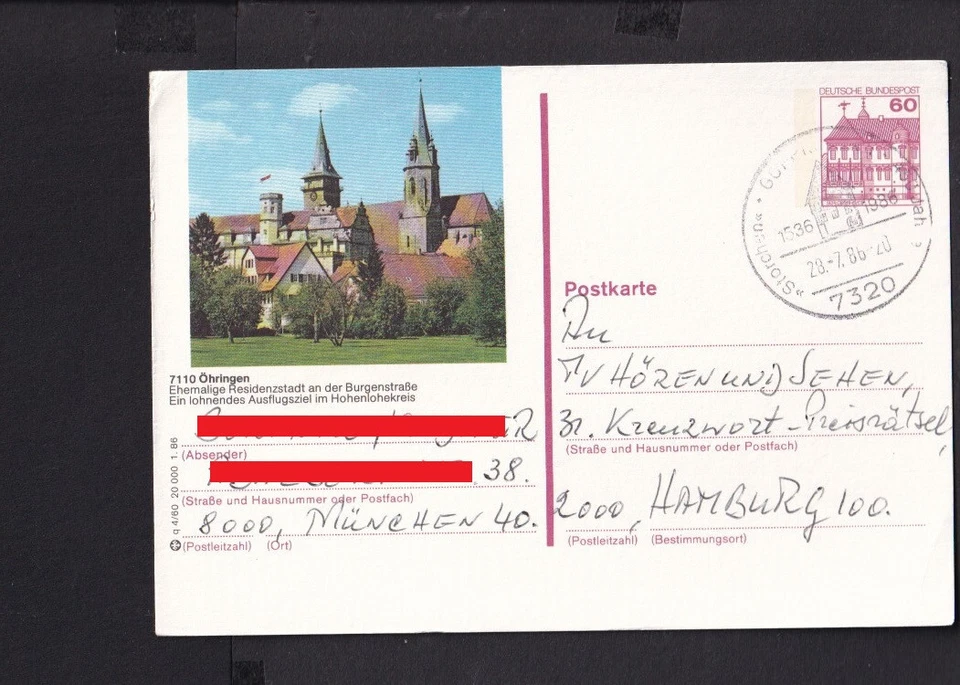 DEUTSCHE BUNDESPOST
60
1536
1986
28.-7.86-20
7320
"Storch-u."
Postkarte
7110 Öhringen
Ehemalige Residenzstadt an der Burgenstraße
Ein lohnendes Ausflugsziel im Hohenlohekreis
(Absender)
38.
(Straße und Hausnummer oder Postfach)
8000, MÜNCHEN 40.
(Postleitzahl) (Ort)
q 4/60 20 000 1. 86
An
TV HÖREN UND SEHEN,
Kreuzwort-Preisrätsel,
(Straße und Hausnummer oder Postfach)
2000, HAMBURG 100.
(Postleitzahl) (Bestimmungsort)